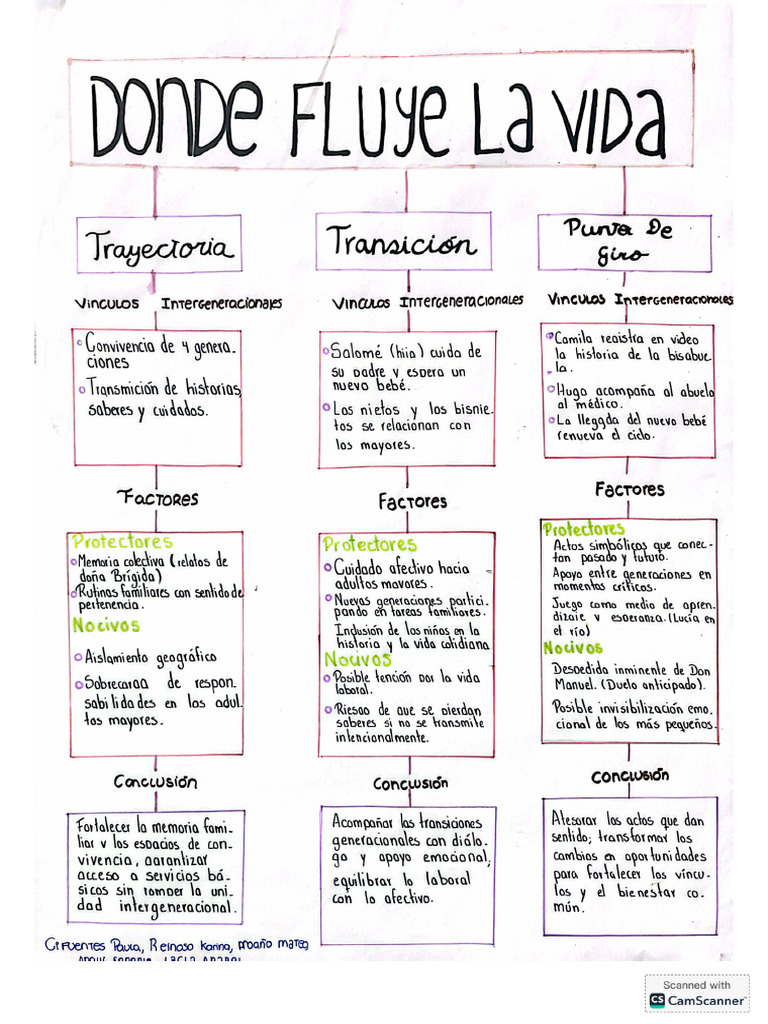 DONDE FLUYE LA VIDA
Trayectoria
Vinculos Intergeneracionales
Convivencia de 4 genera-
ciones
Transmición de historias,
saberes y cuidados.
Factores
Protectores
Memoria colectiva (relatos de
doña Brígida)
Rutinas familiares con sentido de
pertenencia.
Nocivos
Aislamiento geográfico
Sobrecarga de respon
sabilidades en los adul
tos mayores.
Conclusión
Fortalecer la memoria fami-
liar y los espacios de con-
vivencia, garantizar
acceso a servicios bá-
sicos sin romper la uni-
dad intergeneracional.
Transición
Vinculos Intergeneracionales
Salomé (hija) cuida de
su padre y espera un
nuevo bebé.
Los nietos y los bisnie-
tos se relacionan con
los mayores.
Factores
Protectores
Cuidado afectivo hacia
adultos mayores.
Nuevas generaciones partici-
pando en tareas familiares.
Inclusión de los niños en la
historia y la vida cotidiana
Nocivos
Posible tención por la vida
laboral.
Riesgo de que se pierdan
saberes si no se transmite
intencionalmente.
Conclusión
Acompañar las transiciones
generacionales con diálo-
go y apoyo emocional,
equilibrar lo laboral
con lo afectivo.
Punto De
Giro
Vinculos Intergeneracionales
Camila registra en video
la historia de la bisabue
la.
Hugo acompaña al abuelo
al médico.
La llegada del nuevo bebé
renueva el ciclo.
Factores
Protectores
Actos simbólicos que conec-
tan pasado y futuro.
Apoyo entre generaciones en
momentos críticos.
Juego como medio de apren-
dizaje y esperanza. (Lucía en
el río)
Nocivos
Despedida inminente de Don
Manuel. (Duelo anticipado).
Posible invisibilización emo-
cional de los más pequeños.
Conclusión
Atesorar los actos que dan
sentido; transformar los
cambios en oportunidades
para fortalecer los víncu-
los y el bienestar co-
mún.
Cifuentes Paula, Reinoso Karina, Proaño Mateo,
Scanned with
CS CamScanner